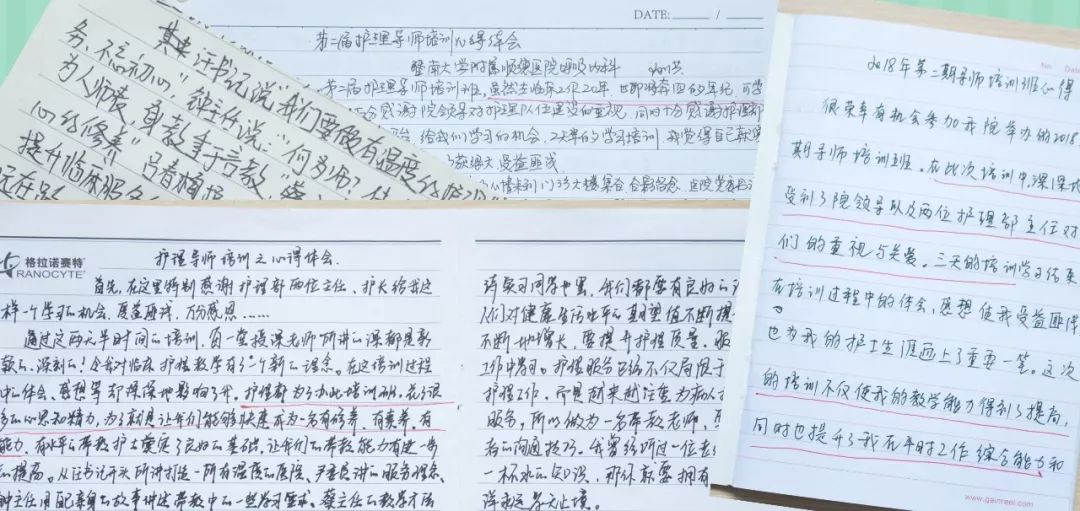 其中汪书记说"我们要做有温度的医
务,不忘初心",钟主任说:何为师?
为人师表,身教重于言教
100的修养"吕春植
提升临床服务
DATE:
第二届护理导师培训心得体会
暨南大学附属顺德医院呼吸内科
第二届护理导师培训班,虽然去临床已20年
十分感谢院领导对护理队伍建设的重视,同时十分感谢护理部
给我们学习的机会,2天半的学习培训,我觉得自己
获得很大受益匪浅
No. Date
2018年第二期导师培训班心得
很荣幸有机会参加我院举办的2018
期导师培训班。在此次培训中,深深地
受到了院领导以及两位护理部主任对
们的重视与关爱。三天的培训学习结束
在培训过程中的体会,感想使我受益匪浅
也为我的护士生涯画上了重要一笔。这次
的培训不仅使我的教学能力得到了提高,
同时也提升了我在平时工作综合能力和
www.gainreel.com
格拉诺赛特
RANOCYTE
护理导师培训之心得体会.
首先,在这里特别感谢护理部两位主任、护长给我这
样一个学习的机会,受益匪浅,万分感恩……
通过这两天半时间的培训,每一堂授课老师所讲的课都是新
颖的、深刻的!令我对临床护理教学有了个新的理念。在这培训过程
中的体会、感想等却深深地影响了我。护理部为了办此培训班,花了很
多的心思和精力,为了就是让我们能够快速成为一名有修养、有素养、有
能力、有水平的带教护士奠定了良好的基础,让我们的带教能力有进一步
的提高。从汪书记开头所讲打造一所有温度的医院、严主任讲的服务理念、
钟主任用自己亲身的故事讲述带教中的一些学习要求、蔡主任的教学方法
们对健康生活水平的期望值不断提
不断地增长,要提升护理质量,服
工作中学习。护理服务已经不仅局限于
护理工作,而是越来越注重为病人
服务,所以做为一名带教老师,
者的沟通技巧。我曾经听过一位老
一杯水的知识,那你就要拥有
洋永远学无止境。